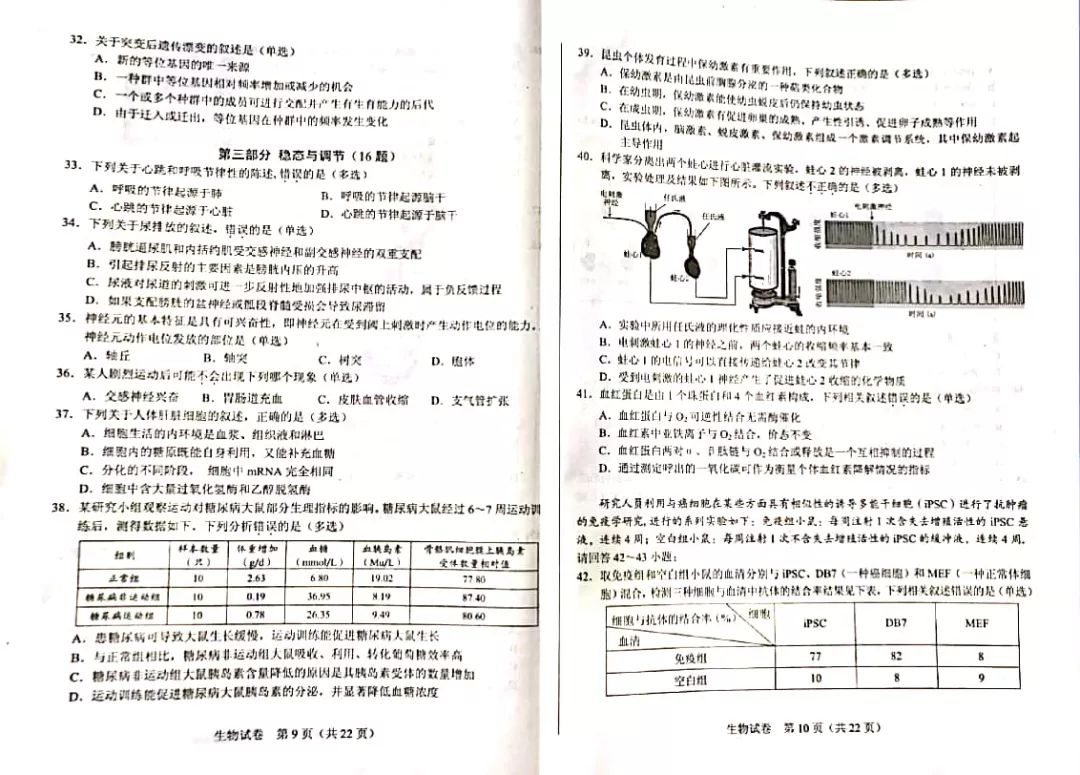 32. 关于突变后遗传漂变的叙述是（单选）
A. 新的等位基因的唯一来源
B. 一种群中等位基因相对频率增加或减少的机会
C. 一个或多个种群中的成员可进行交配并产生有生育能力的后代
D. 由于迁入或迁出，等位基因在种群中的频率发生变化
第三部分 稳态与调节（16题）
33. 下列关于心跳和呼吸节律性的陈述，错误的是（多选）
A. 呼吸的节律起源于肺 B. 呼吸的节律起源脑干
C. 心跳的节律起源于心脏 D. 心跳的节律起源于脑干
34. 下列关于尿排放的叙述，错误的是（单选）
A. 膀胱逼尿肌和内括约肌受交感神经和副交感神经的双重支配
B. 引起排尿反射的主要因素是膀胱内压的升高
C. 尿液对尿道的刺激可进一步反射性地加强排尿中枢的活动，属于负反馈过程
D. 如果支配膀胱的盆神经或骶段脊髓受损会导致尿滞留
35. 神经元的基本特征是具有可兴奋性，即神经元在受到阈上刺激时产生动作电位的能力。
神经元动作电位发放的部位是（单选）
A. 轴丘 B. 轴突 C. 树突 D. 胞体
36. 某人剧烈运动后可能不会出现下列哪个现象（单选）
A. 交感神经兴奋 B. 胃肠道充血 C. 皮肤血管收缩 D. 支气管扩张
37. 下列关于人体肝脏细胞的叙述，正确的是（多选）
A. 细胞生活的内环境是血浆、组织液和淋巴
B. 细胞内的糖原既能自身利用，又能补充血糖
C. 分化的不同阶段，细胞中 mRNA 完全相同
D. 细胞中含大量过氧化氢酶和乙醇脱氢酶
38. 某研究小组观察运动对糖尿病大鼠部分生理指标的影响。糖尿病大鼠经过 6～7 周运动训
练后，测得数据如下。下列分析错误的是（多选）
组别 样本数量（只） 体重增加（g/d） 血糖（mmol/L） 血胰岛素（Mu/L） 骨骼肌细胞膜上胰岛素受体数量相对值
正常组 10 2.63 6.80 19.02 77.80
糖尿病非运动组 10 0.19 36.95 8.19 87.40
糖尿病运动组 10 0.78 26.35 9.49 80.60
A. 患糖尿病可导致大鼠生长缓慢，运动训练能促进糖尿病大鼠生长
B. 与正常组相比，糖尿病非运动组大鼠吸收、利用、转化葡萄糖效率高
C. 糖尿病非运动组大鼠胰岛素含量降低的原因是其胰岛素受体的数量增加
D. 运动训练能促进糖尿病大鼠胰岛素的分泌，并显著降低血糖浓度
生物试卷 第 9 页（共 22 页）
39. 昆虫个体发育过程中保幼激素有重要作用，下列叙述正确的是（多选）
A. 保幼激素是由昆虫前胸腺分泌的一种萜类化合物
B. 在幼虫期，保幼激素能使幼虫蜕皮后仍保持幼虫状态
C. 在成虫期，保幼激素有促进卵巢的成熟、产生性引诱、促进卵子成熟等作用
D. 昆虫体内，脑激素、蜕皮激素、保幼激素组成一个激素调节系统，其中保幼激素起
主导作用
40. 科学家分离出两个蛙心进行心脏灌流实验，蛙心 2 的神经被剥离，蛙心 1 的神经未被剥
离，实验处理及结果如下图所示。下列叙述不正确的是（多选）
电刺激神经 任氏液 任氏液 蛙心1 蛙心2
电刺激神经
蛙心1 收缩强度 时间 (s)
蛙心2 收缩强度 时间 (s)
A. 实验中所用任氏液的理化性质应接近蛙的内环境
B. 电刺激蛙心 1 的神经之前，两个蛙心的收缩频率基本一致
C. 蛙心 1 的电信号可以直接传递给蛙心 2 改变其节律
D. 受到电刺激的蛙心 1 神经产生了促进蛙心 2 收缩的化学物质
41. 血红蛋白是由 1 个珠蛋白和 4 个血红素构成，下列相关叙述错误的是（单选）
A. 血红蛋白与 O₂可逆性结合无需酶催化
B. 血红素中亚铁离子与 O₂结合，价态不变
C. 血红蛋白两对 α、β 肽链与 O₂结合或释放是一个互相抑制的过程
D. 通过测定呼出的一氧化碳可作为衡量个体血红素降解情况的指标
研究人员利用与癌细胞在某些方面具有相似性的诱导多能干细胞（iPSC）进行了抗肿瘤
的免疫学研究，进行的系列实验如下：免疫组小鼠：每周注射 1 次含失去增殖活性的 iPSC 悬
液，连续 4 周；空白组小鼠：每周注射 1 次不含失去增殖活性的 iPSC 的缓冲液，连续 4 周。
请回答 42～43 小题：
42. 取免疫组和空白组小鼠的血清分别与 iPSC、DB7（一种癌细胞）和 MEF（一种正常体细
胞）混合，检测三种细胞与血清中抗体的结合率结果见下表，下列相关叙述错误的是（单选）
细胞与抗体的结合率（%） 细胞 血清 iPSC DB7 MEF
免疫组 77 82 8
空白组 10 8 9
生物试卷 第 10 页（共 22 页）